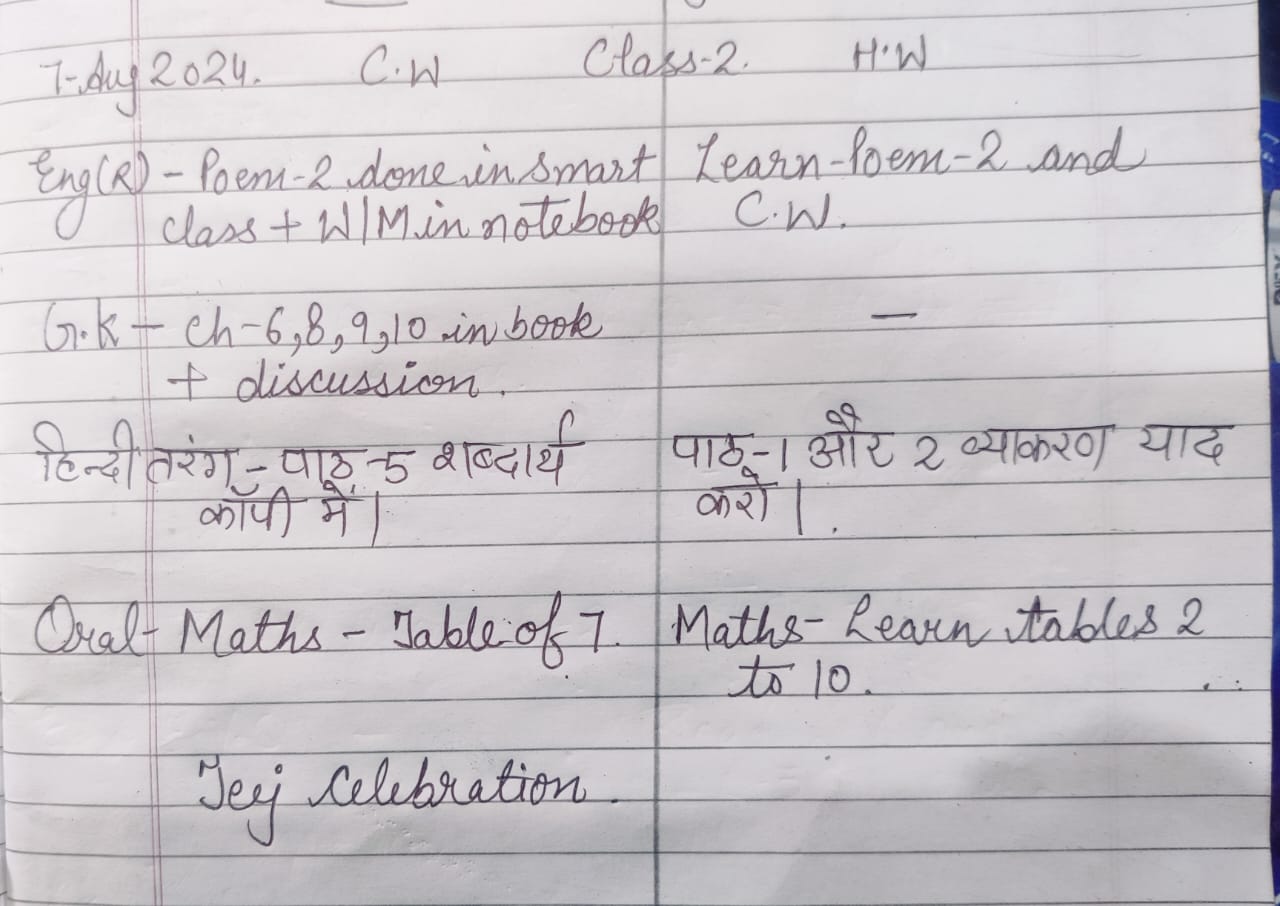 7-Aug 2024. C.W Class-2. H.W
Eng(R) - Poem-2 done in smart Learn-Poem-2 and
class + W/M in notebook C.W.
G.K - Ch-6,8,9,10 in book —
+ discussion.
हिन्दी तरंग - पाठ-5 शब्दार्थ पाठ-1 और 2 व्याकरण याद
कॉपी में। करो।
Oral- Maths - Table of 7. Maths- Learn tables 2
to 10.
Teej Celebration.